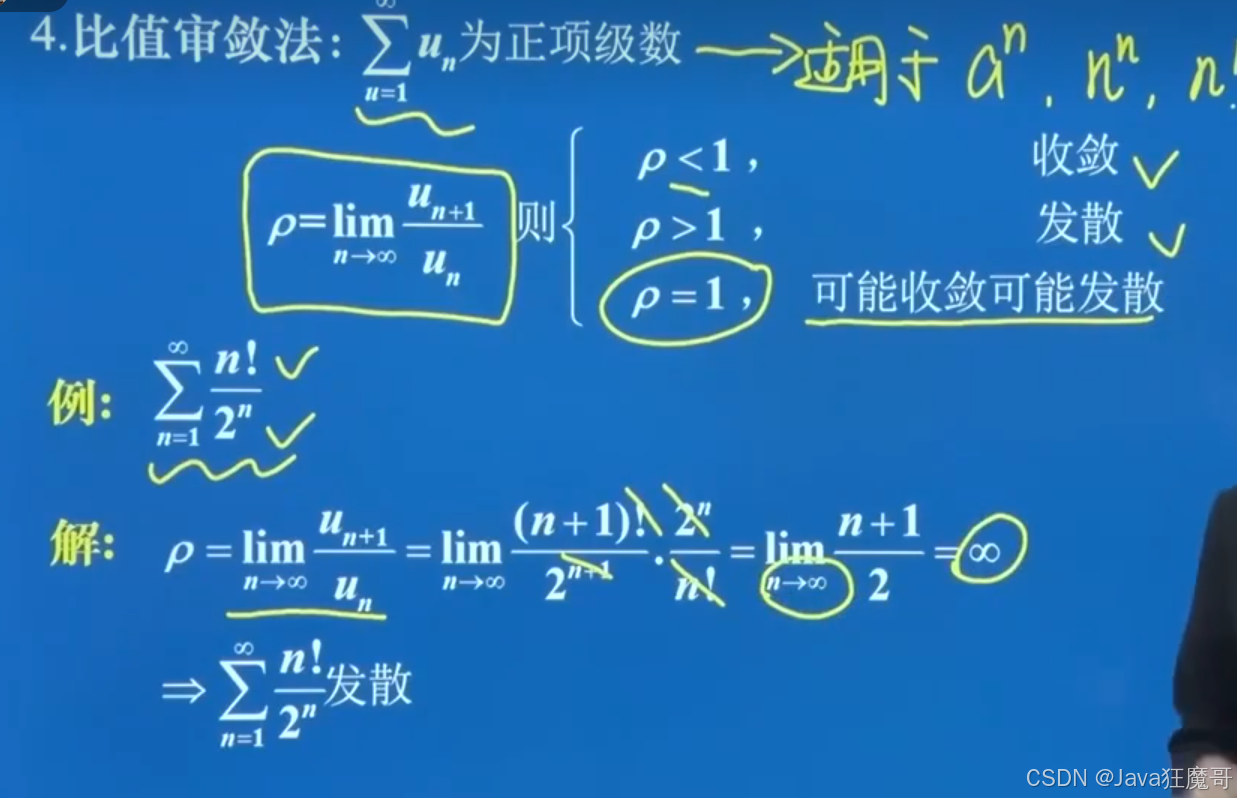 4.比值审敛法: ∑_{u=1}^{∞} u_n 为正项级数 → 适用于 a^n, n^n, n!
ρ=lim_{n→∞} u_{n+1}/u_n 则 { ρ<1, 收敛
ρ>1, 发散
ρ=1, 可能收敛可能发散
例: ∑_{n=1}^{∞} n!/2^n
解: ρ = lim_{n→∞} u_{n+1}/u_n = lim_{n→∞} (n+1)!/2^{n+1} · 2^n/n! = lim_{n→∞} (n+1)/2 = ∞
⇒ ∑_{n=1}^{∞} n!/2^n 发散
CSDN @Java狂魔哥